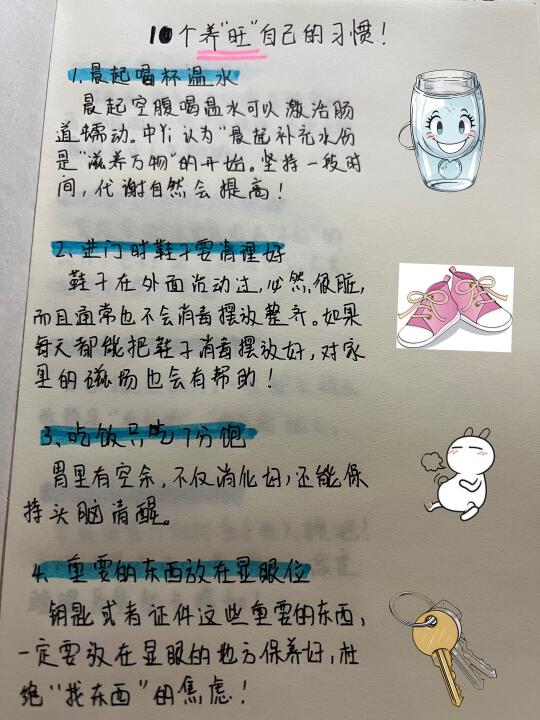 10个养“旺”自己的习惯！
1.晨起喝杯温水
晨起空腹喝温水可以激活肠
道蠕动。中Yi认为“晨起补充水份
是“滋养万物”的开始。坚持一段时
间，代谢自然会提高！
2、进门时鞋子要清理好
鞋子在外面活动过，必然很脏，
而且通常也不会消毒摆放整齐。如果
每天都能把鞋子消毒摆放好，对家
里的磁场也会有帮助！
3、吃饭只吃7分饱
胃里有空余，不仅消化好，还能保
持头脑清醒。
4、重要的东西放在显眼位
钥匙或者证件这些重要的东西，
一定要放在显眼的地方保养好，杜
绝“找东西”的焦虑！